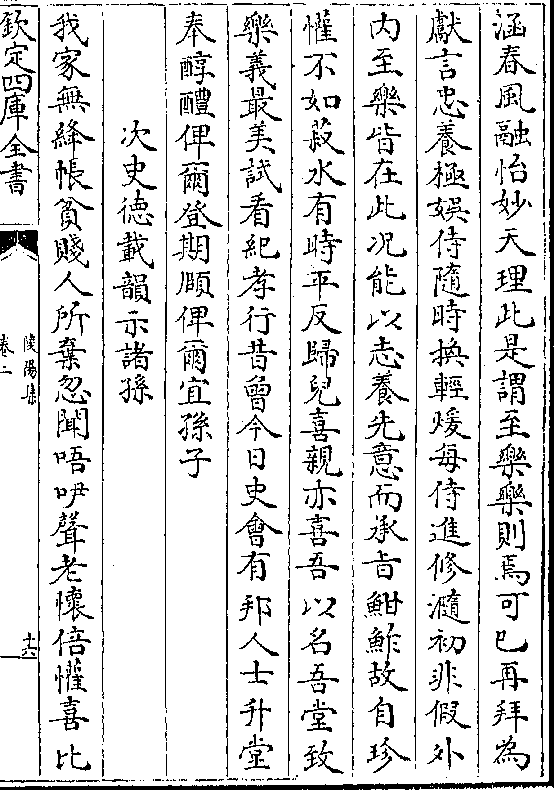 涵春風融怡妙天理此是謂至樂樂則焉可已再拜為
獻言忠養極娱侍隨時换輕煖每侍進修瀡初非假外
内至樂皆在此况能以志養先意而承旨鮒鮓故自珍
懽不如菽水有時平反歸兒喜親亦喜吾以名吾堂致
樂義最美試看紀孝行昔曾今日史會有邦人士升堂
奉醇醴俾爾登期頤俾爾宜孫子
次史德載韻示諸孫
我家無絳帳貧賤人所棄忽聞唔咿聲老懷倍懽喜比
欽定四庫全書
陵陽集
卷二
十六